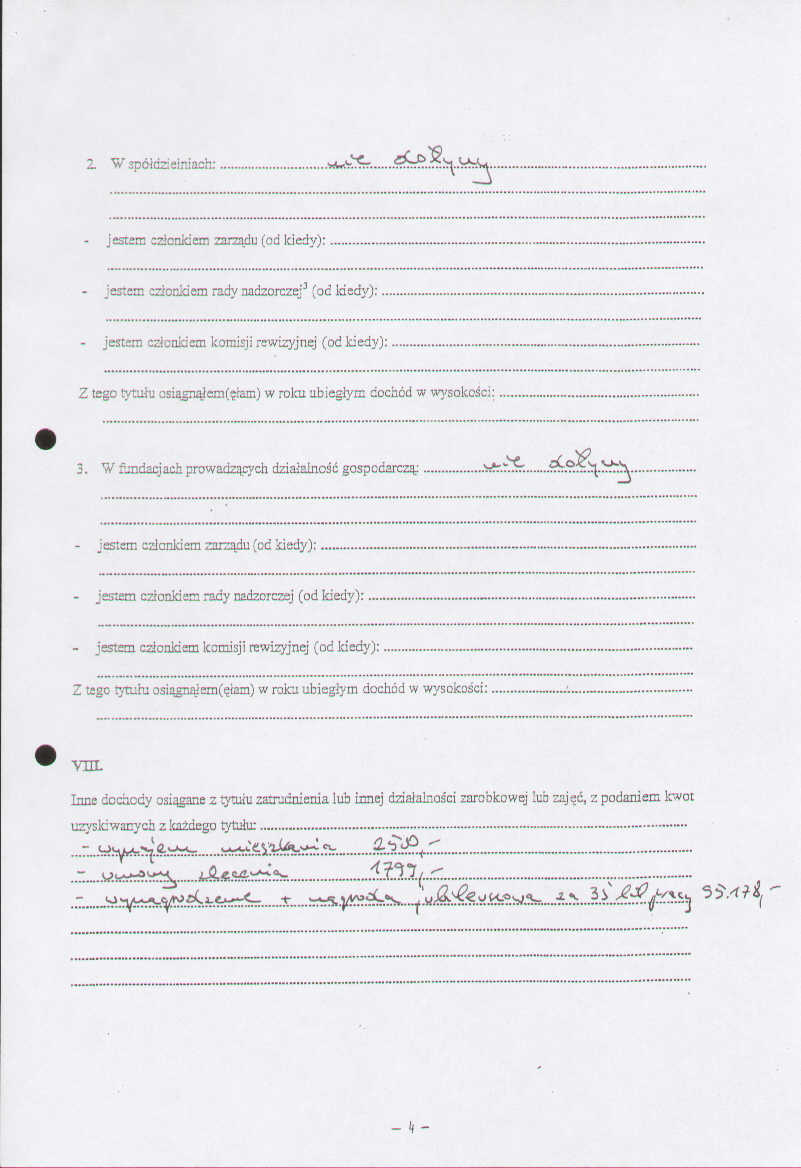 2. W spółdzielniach: ........ nie dotyczy ........
- jestem członkiem zarządu (od kiedy): ........
- jestem członkiem rady nadzorczej³ (od kiedy): ........
- jestem członkiem komisji rewizyjnej (od kiedy): ........
Z tego tytułu osiągnąłem(ęłam) w roku ubiegłym dochód w wysokości: ........
3. W fundacjach prowadzących działalność gospodarczą: ........ nie dotyczy ........
- jestem członkiem zarządu (od kiedy): ........
- jestem członkiem rady nadzorczej (od kiedy): ........
- jestem członkiem komisji rewizyjnej (od kiedy): ........
Z tego tytułu osiągnąłem(ęłam) w roku ubiegłym dochód w wysokości: ........
VIII.
Inne dochody osiągane z tytułu zatrudnienia lub innej działalności zarobkowej lub zajęć, z podaniem kwot
uzyskiwanych z każdego tytułu: ........
- wynajem mieszkania 2500,-
- umowy zlecenia 1799,-
- wynagrodzenie + nagroda jubileuszowa za 35 lat pracy 95.178,-
- 4 -